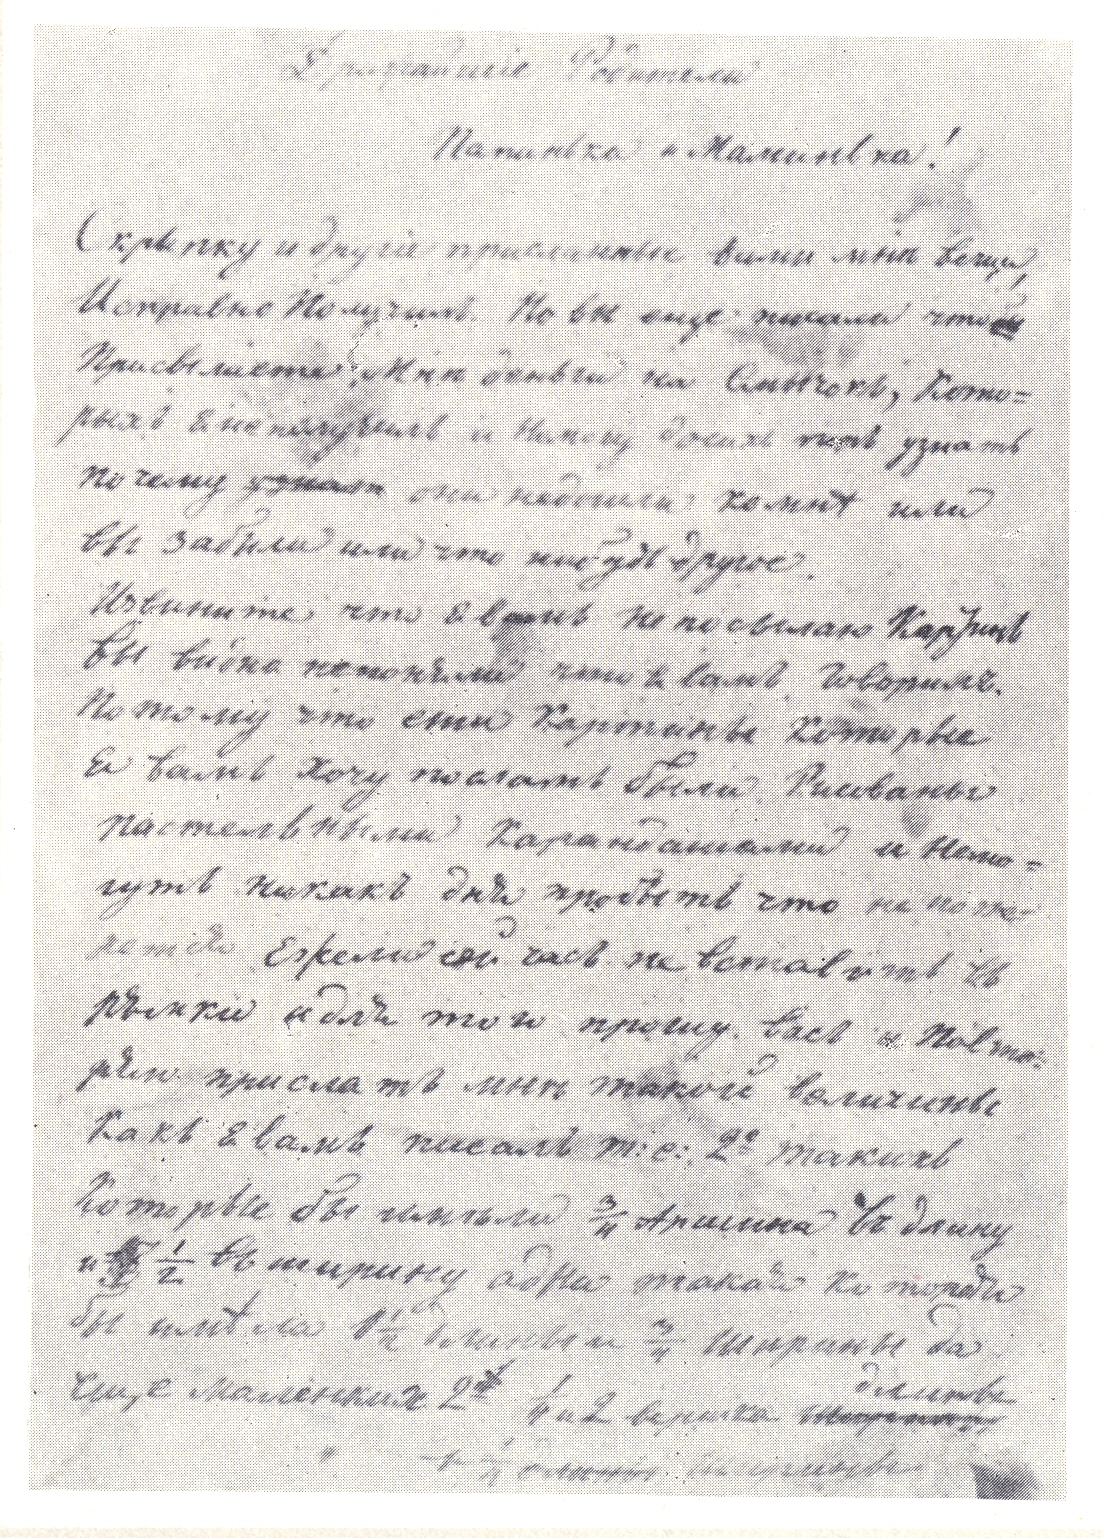 Дражайшіе Родители
Папинька и Маминька!
Скрыпку и другіе присланные вами мнѣ вещи,
Исправно Получилъ. Но вы еще писали что
Присылаете Мнѣ деньги на Смычокъ, Кото-
рыхъ Я неполучилъ и Немогу досихъ поръ узнать
почему они недошли комнѣ или
вы забыли или что нибудь другое.
Извините что Я вамъ не посылаю Картинъ
вы видно непонѣли что Я вамъ говорилъ.
Потому что ети Картины Которые
Я вамъ хочу послать были Рисованы
пастельными Карандашами и немо-
гутъ никакъ днѣ пробыть что не поте-
ежели сей часъ не вставить въ
рѣмки и длѣ того прошу васъ и Повто-
рѣю прислать мнѣ такой величины
Какъ Я вамъ писалъ т: е: 2е такихъ
Которые бы имѣли 3/4 Аршина въ длину
и 1/2 въ ширину одна такаѣ ко тораѣ
бы имѣла длины и 3/4 Ширины да
еще маленкихъ 2 1/4 и 2 вершка длины
ширины